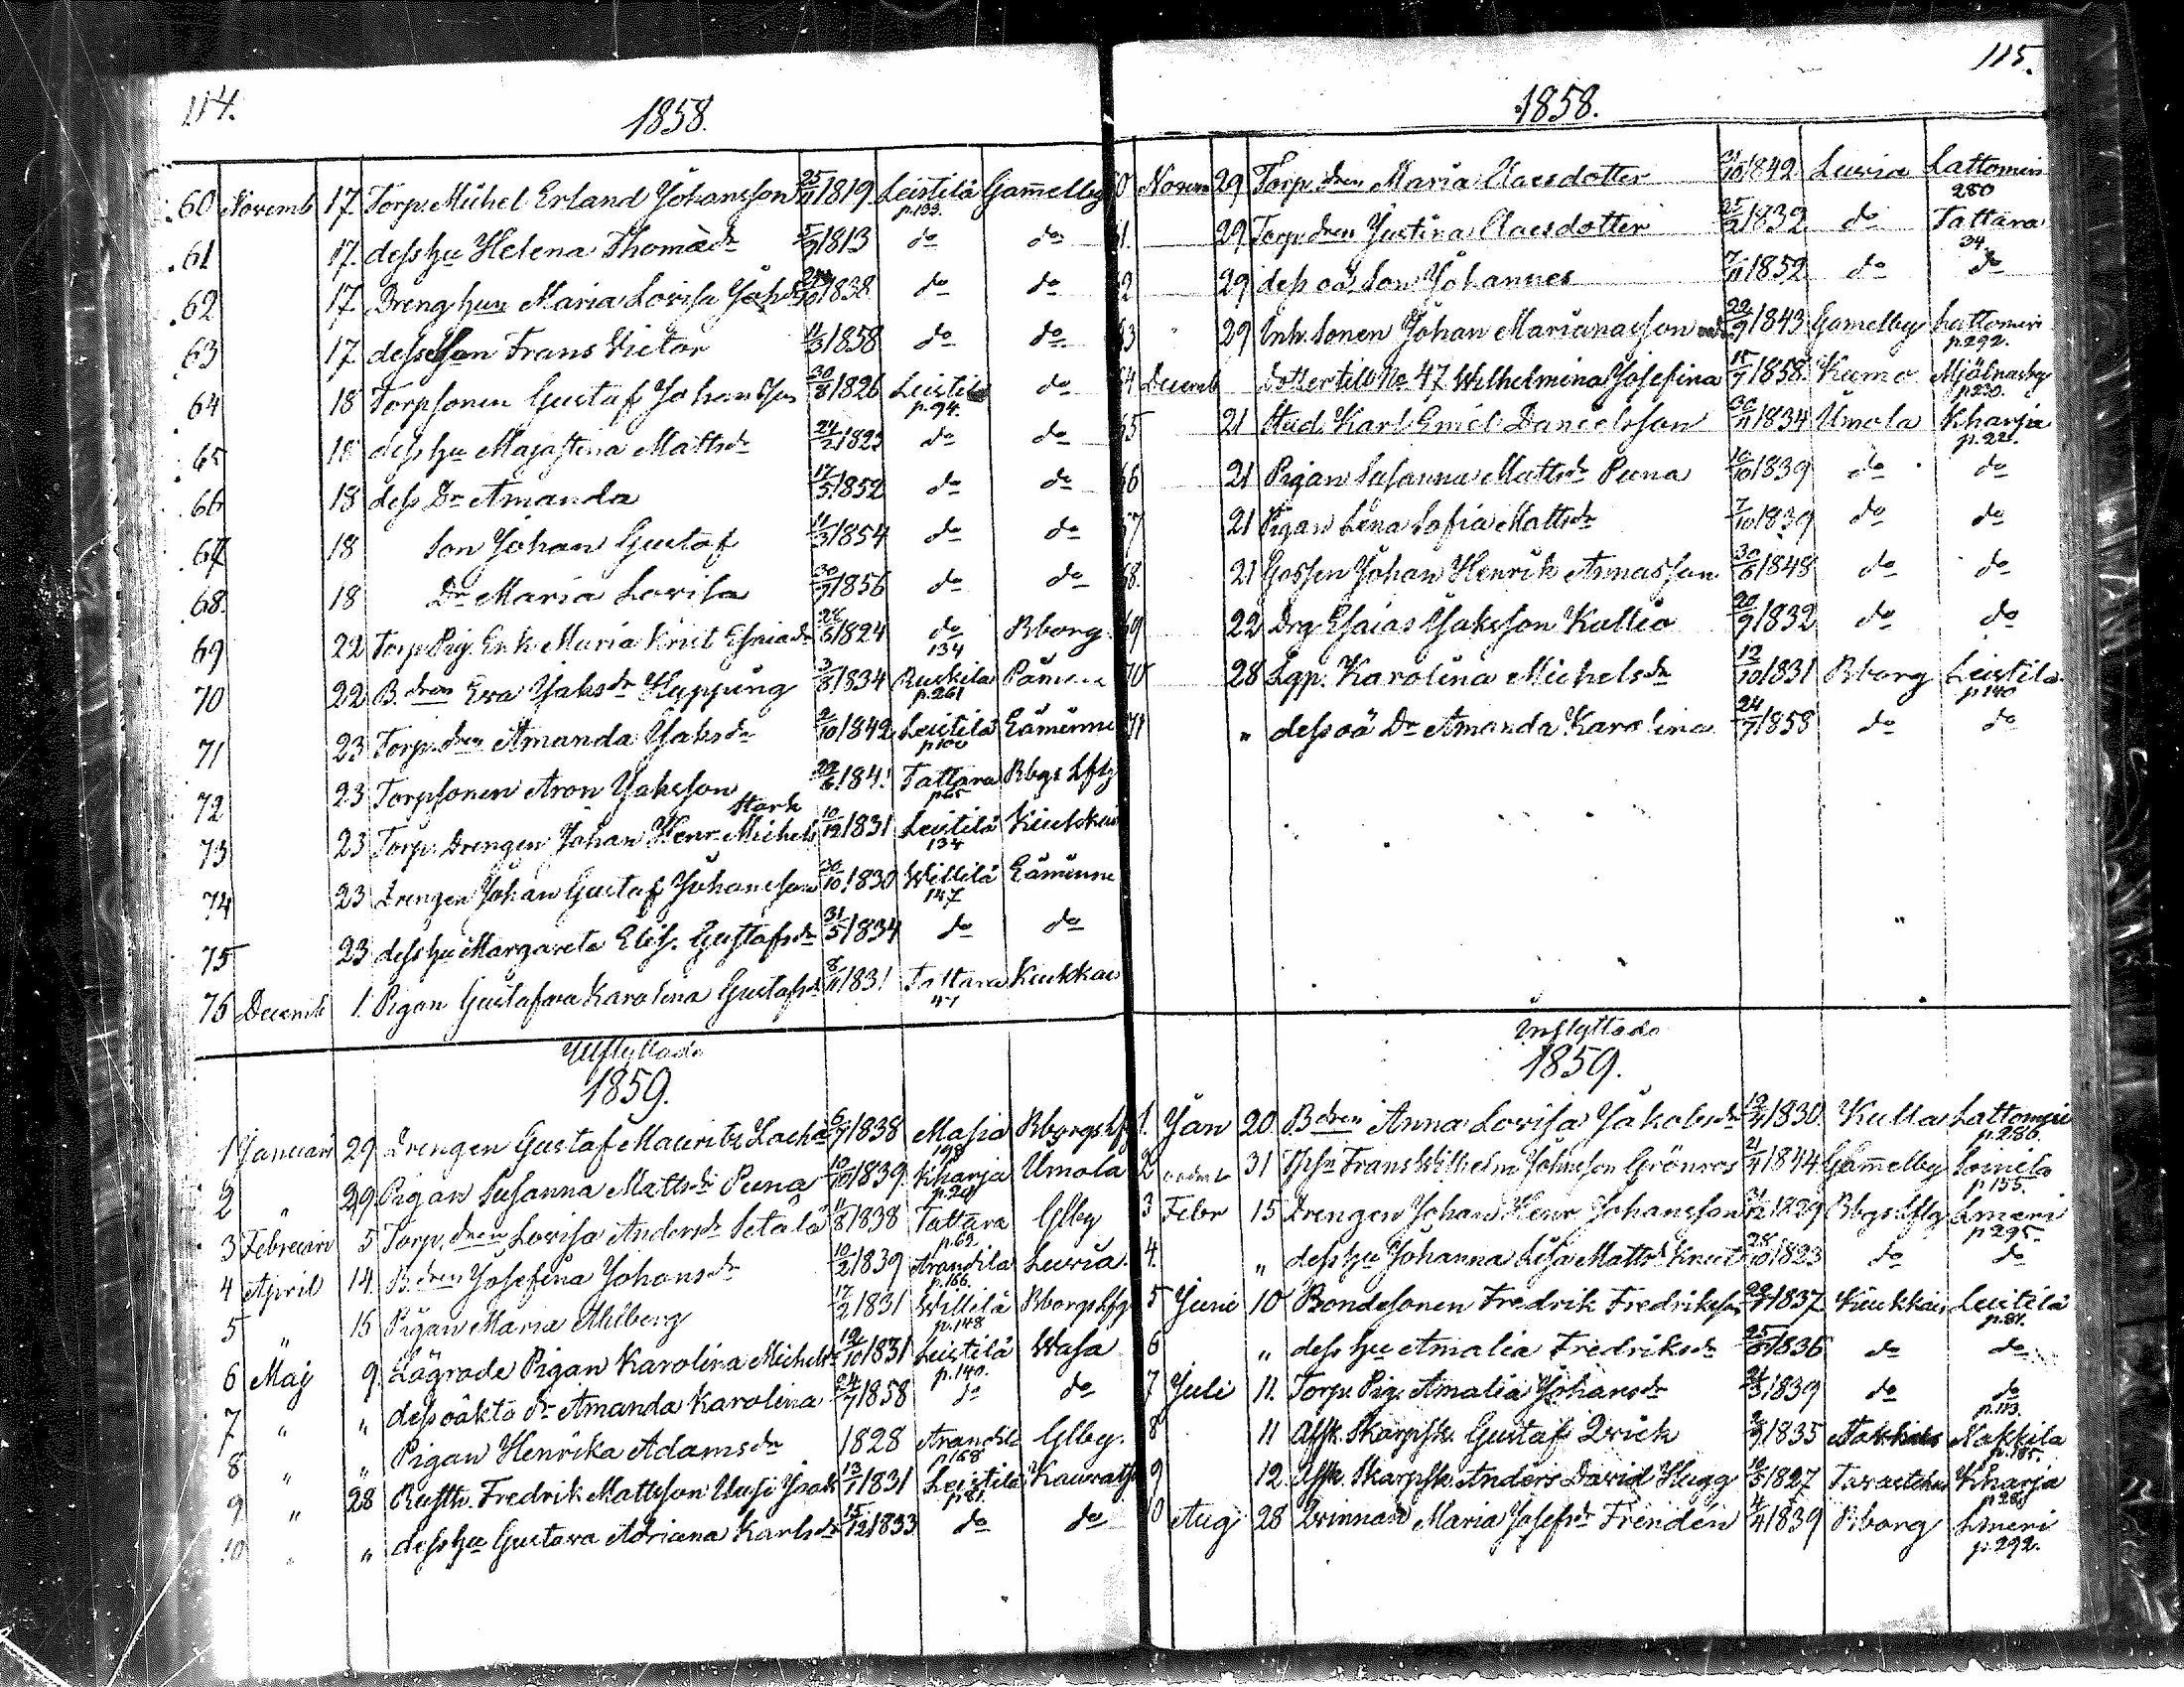 114.
1858.
60 Novemb 17. Torp. Michel Erland Johansson 25/11 1819 Leistilä p.133. Gam̄elby
61 17. dess hu Helena Thomædr 5/9 1813 do do
62 17. Dreng hun Maria Lovisa Johsdr 1838 do do
63 17. dess Son Frans Victor 11/3 1858 do do
64 18 Torpsonen Gustaf Johansson 30/8 1826 Leistilä p.94. do
65 18 dess hu Majastina Mattsdr 24/2 1823 do do
66 18 dess Dr Amanda 17/5 1852 do do
67 18 Son Johan Gustaf 11/3 1854 do do
68. 18 Dr Maria Lovisa 30/7 1856 do do
69 22 Torp. Pig. Enk. Maria Krist. Esaiadr 26/5 1824 do 134 Bborg
70 22 B.dren Eva Jaksdr Huppung 3/8 1834 Ruskila p.261
71 23 Torp. dren Amanda Jaksdr 2/10 1842 Leistilä p100 Eämänne
72 23 Torpsonen Aron Jaksson 29/6 184. Tattara p65 Bbgs Lfsg
73 23 Torp. Drengen Johan Henr Michels Stark 10/12 1831 Leistilä 134
74 23 Drengen Johan Gustaf Johansson 30/10 1830 Willilä 147 Eämänne
75 23 dess hu Margareta Elis. Gustafsdr 31/5 1834 do do
76 Decemb 1. Pigan Gustafava Karolina Gustafsdr 8/11 1831 Tattara 47 Kiukkais
Utflyttade
1859.
1 Januari 29 Drengen Gustaf Mauritz Zachs 6/7 1838 Masia 198 Bborgs Lfs
2 " 29 Pigan Susanna Mattsdr Puna 10/10 1839 Kharja p.24 Umola
3 Februari 5 Torp. dren Lovisa Andersdr Setälä 11/8 1838 Tattara p.62. Glby
4 April 14. B.dren Josefina Johansdr 10/2 1839 Arandila p.166. Luvia.
5 " 15 Pigan Maria Ahlberg 17/2 1831 Willilä p.148 Bborgs Lfsg
6 Maj 9. Lägrade Pigan Karolina Michelsdr 12/10 1831 Leistilä p.140. Wasa
7 " " dess oäkta dr Amanda Karolina 24/7 1858 do do
8 " " Pigan Henrika Adamsdr 1828 Arandila p168 Glby.
9 " 28 Rusth. Fredrik Mattsson Uusi Jaak 13/1 1831 Leistilä p81. Kauvatsa
10 " " dess hu Gustava Adriana Karlsdr 15/12 1833 do do
115.
1858.
60 Novem 29 Torp. dren Maria Claesdotter 1842 Luvia Lattomeri 280
61. 29 Torp. dren Justina Claesdotter 25/2 1832 do Tattara 34
62 29 dess oä. Son Johannes 7/11 1852 do do
63 " 29 Inh. Sonen Johan Marianasson 22/9 1843 Gamelby Lattomeri p292.
64 Decemb dotter till No 47 Wilhelmina Josefina 15/7 1858. Kumo Mjölnarby p230.
65 21 Stud. Karl Emil Danielsson 30/11 1834 Umola Kharja p.22.
66 21 Pigan Susanna Mattsdr Puna 10/10 1839 do do
67 21 Pigan Lena Sofia Mattsdr 7/10 1839 do do
68. 21 Gossen Johan Henrik Annasson 30/6 1848 do do
69 22 Drg Esaias Jaksson Kallio 20/9 1832 do do
70 28 Lgp. Karolina Michelsdr 12/10 1831 Bborg Leistilä p140
71 " dess oä Dr Amanda Karolina 24/7 1858 do do
Inflyttade
1859.
1. Jan 20. B.dren Anna Lovisa Jakobsdr 1830. Kulla Lattomeri p.286.
2 31 Frans Wilhelm Johnsson Grönroos 2/4 1844 Gam̄elby Soinila p155.
3 Febr 15 Drengen Johan Henr Johansson 1829 Bbgs Lfsg Lmeri p295
4. " dess hu Johanna Lisa Mattsdr Knut 28/10 1823 do do
5 Juni 10 Bondesonen Fredrik Fredriksson 1837 Kiukkais Leistilä p.81.
6 " dess hu Amalia Fredriksdr 25/8 1836 do do
7 Juli 11. Torp. Pig. Amalia Johansdr 1839 do do p.113.
8 11 Afsk. Skarpsk. Gustaf Qvick 1835 Nakkila p.185.
9 12 Afsk. Skarpsk. Anders David Hugg 12/5 1827 Tavastehus Kharja p28
10 Aug 28 Qvinnan Maria Josefsdr Frenden 4/4 1839 Bborg Lmeri p.292.